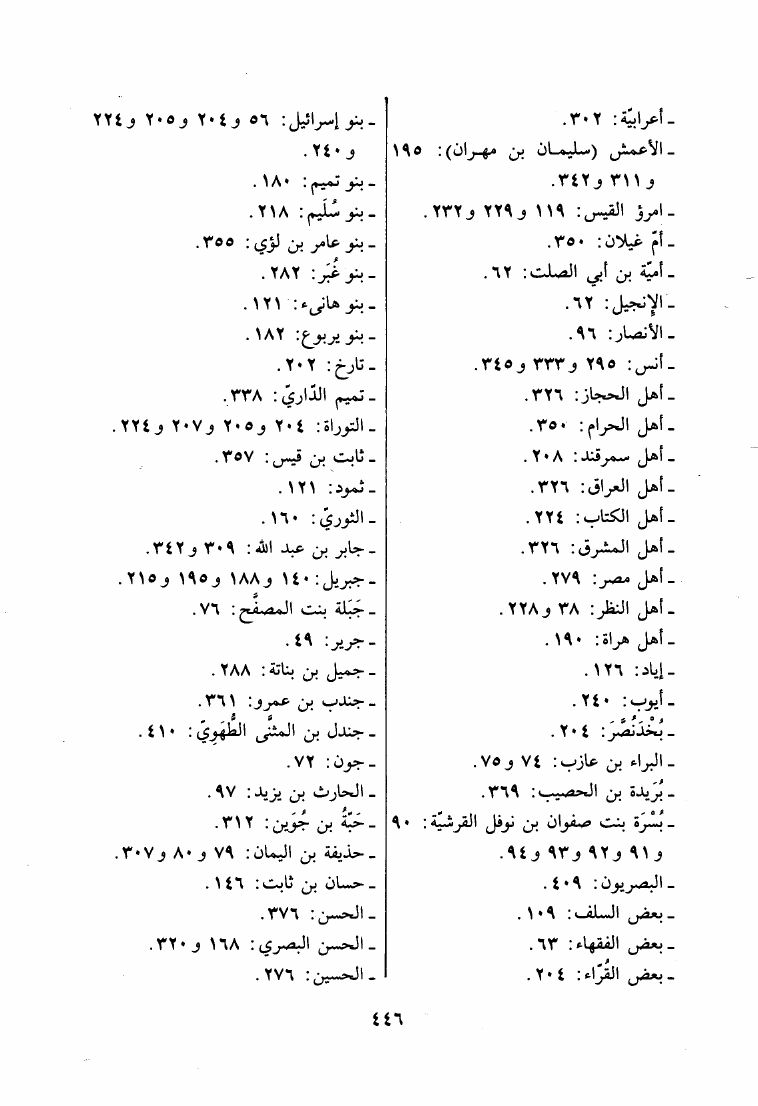 - أعرابيّة: ٣٠٢.
- الأعمش (سليمـان بن مهـران): ١٩٥
و ٣١١ و ٣٤٢.
- امرؤ القيس: ١١٩ و ٢٢٩ و ٢٣٢.
- أمّ غيلان: ٣٥٠.
- أميّة بن أبي الصلت: ٦٢.
- الإنجيل: ٦٢.
- الأنصار: ٩٦.
- أنس: ٢٩٥ و ٣٣٣ و ٣٤٥.
- أهل الحجاز: ٣٢٦.
- أهل الحرام: ٣٥٠.
- أهل سمرقند: ٢٠٨.
- أهل العراق: ٣٢٦.
- أهل الكتاب: ٢٢٤.
- أهل المشرق: ٣٢٦.
- أهل مصر: ٢٧٩.
- أهل النظر: ٣٨ و ٢٢٨.
- أهل هراة: ١٩٠.
- إياد: ١٢٦.
- أيوب: ٢٤٠.
- بُخْدَنُصَّرَ: ٢٠٤.
- البراء بن عازب: ٧٤ و ٧٥.
- بُرَيدة بن الحصيب: ٣٦٩.
- بُسْرَة بنت صفوان بن نوفل القرشيّة: ٩٠
و ٩١ و ٩٢ و ٩٣ و ٩٤.
- البصريون: ٤٠٩.
- بعض السلف: ١٠٩.
- بعض الفقهاء: ٦٣.
- بعض القُرّاء: ٢٠٤.
- بنو إسرائيل: ٥٦ و ٢٠٤ و ٢٠٥ و ٢٢٤
و ٢٤٠.
- بنو تميم: ١٨٠.
- بنو سُلَيم: ٢١٨.
- بنو عامر بن لؤي: ٣٥٥.
- بنو غُبَر: ٢٨٢.
- بنو هانىء: ١٢١.
- بنو يربوع: ١٨٢.
- تارخ: ٢٠٢.
- تميم الدّاريّ: ٣٣٨.
- التوراة: ٢٠٤ و ٢٠٥ و ٢٠٧ و ٢٢٤.
- ثابت بن قيس: ٣٥٧.
- ثمود: ١٢١.
- الثوريّ: ١٦٠.
- جابر بن عبد الله: ٣٠٩ و ٣٤٢.
- جبريل: ١٤٠ و ١٨٨ و ١٩٥ و ٢١٥.
- جَبَلة بنت المصفَّح: ٧٦.
- جرير: ٤٩.
- جميل بن بناتة: ٢٨٨.
- جندب بن عمرو: ٣٦١.
- جندل بن المثنَّى الطُّهَوِيّ: ٤١٠.
- جون: ٧٢.
- الحارث بن يزيد: ٩٧.
- حَبَّةُ بن جُوَين: ٣١٢.
- حذيفة بن اليمان: ٧٩ و ٨٠ و ٣٠٧.
- حسان بن ثابت: ١٤٦.
- الحسن: ٣٧٦.
- الحسن البصري: ١٦٨ و ٣٢٠.
- الحسين: ٢٧٦.
٤٤٦